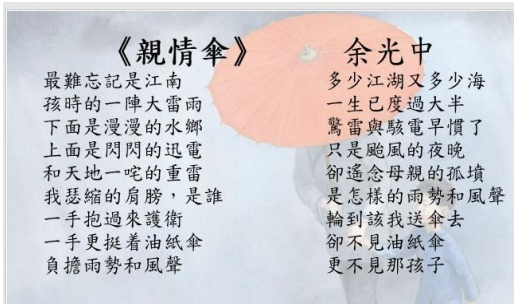 《親情傘》 余光中
最難忘記是江南
孩時的一陣大雷雨
下面是漫漫的水鄉
上面是閃閃的迅電
和天地一咤的重雷
我瑟縮的肩膀，是誰
一手抱過來護衛
一手更挺着油紙傘
負擔雨勢和風聲
多少江湖又多少海
一生已度過大半
驚雷與駭電早慣了
只是颱風的夜晚
卻遙念母親的孤墳
是怎樣的雨勢和風聲
輪到該我送傘去
卻不見油紙傘
更不見那孩子